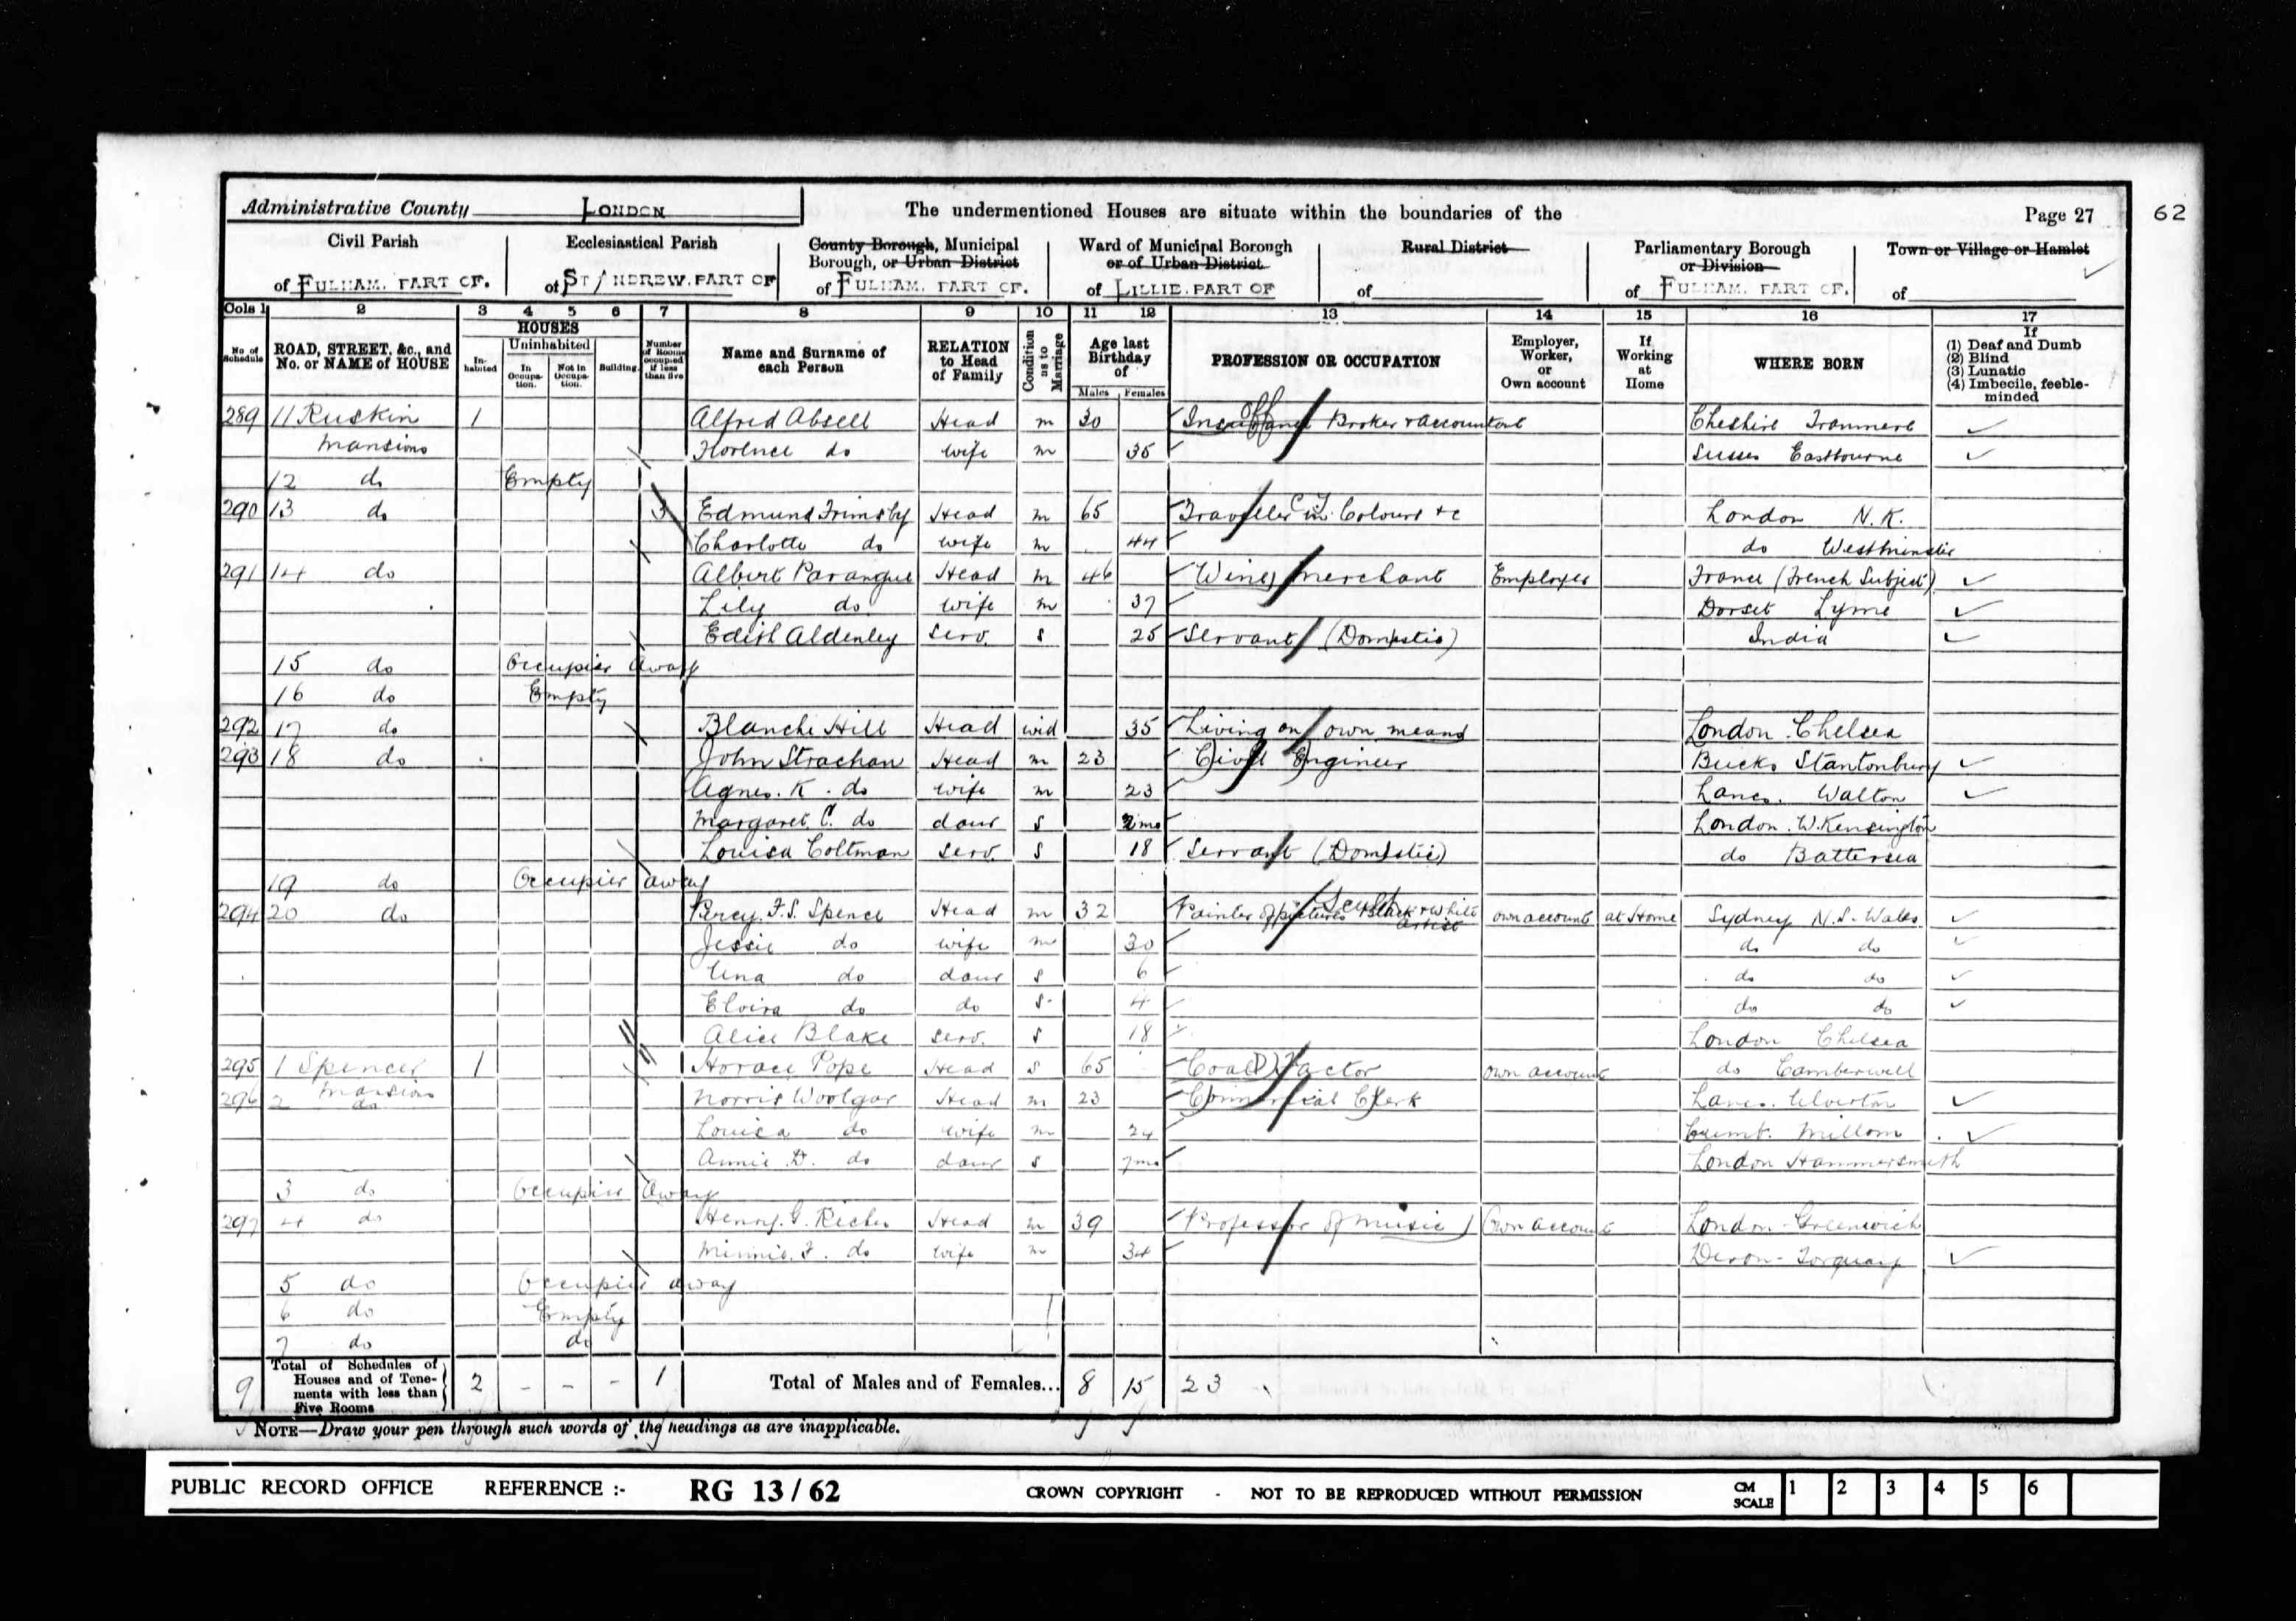 Administrative County LONDON The undermentioned Houses are situate within the boundaries of the Page 27 62
Civil Parish Ecclesiastical Parish County Borough, Municipal Borough, or Urban District Ward of Municipal Borough or of Urban District Rural District Parliamentary Borough or Division Town or Village or Hamlet
of FULHAM. PART OF. of ST ANDREW. PART OF of FULHAM. PART OF. of LILLIE. PART OF of of FULHAM. PART OF. of
Cols 1 2 3 4 5 6 7 8 9 10 11 12 13 14 15 16 17
No of Schedule ROAD, STREET, &c., and No. or NAME of HOUSE HOUSES In-habited Uninhabited In Occupa-tion. Not in Occupa-tion. Building. Number of Rooms occupied if less than five Name and Surname of each Person RELATION to Head of Family Condition as to Marriage Age last Birthday of Males Females PROFESSION OR OCCUPATION Employer, Worker, or Own account If Working at Home WHERE BORN If (1) Deaf and Dumb (2) Blind (3) Lunatic (4) Imbecile, feeble-minded
289 11 Ruskin 1 Alfred Absell Head m 30 Insurance Off Broker & Accountant Cheshire Tranmere
Mansions Florence do wife m 35 Sussex Eastbourne
12 do Empty
290 13 do 3 Edmund Frimsby Head m 65 Traveller in Colours &c London N.K.
Charlotte do wife m 44 do Westminster
291 14 do Albert Parangue Head m 46 Wine Merchant Employer France (French Subject)
Lily do wife m 37 Dorset Lyme
Edith Aldenley Serv. s 25 Servant (Domestic) India
15 do Occupier Away
16 do Empty
292 17 do Blanche Hill Head wid 35 Living on own means London Chelsea
293 18 do John Strachan Head m 23 Civil Engineer Bucks Stantonbury
Agnes. K. do wife m 23 Lancs. Walton
Margaret. C. do daur s 2 mo London. W. Kensington
Louisa Coltman Serv. s 18 Servant (Domestic) do Battersea
19 do Occupier away
294 20 do Percy. F. S. Spence Head m 32 Painter of pictures & Black & White Artist Sculp own account at Home Sydney N. S. Wales
Jessie do wife m 30 do do
Una do daur s 6 do do
Elvira do do s 4 do do
Alice Blake serv. s 18 London Chelsea
295 1 Spencer Mansions 1 Horace Pope Head s 65 Coal Factor own account do Camberwell
296 2 do Norris Woolgar Head m 23 Commercial Clerk Lancs. Ulverston
Louisa do wife m 24 Cumb. Millom
Annie D. do daur s 7 mo London Hammersmith
3 do Occupier Away
297 4 do Henry. G. Richer Head m 39 Professor of Music Own account London Greenwich
Minnie. F. do wife m 34 Devon Torquay
5 do Occupier away
6 do Empty
7 do do
9 Total of Schedules of Houses and of Tene-ments with less than Five Rooms 2 - - - 1 Total of Males and of Females... 8 15 23
NOTE—Draw your pen through such words of the headings as are inapplicable.
PUBLIC RECORD OFFICE REFERENCE :- RG 13 / 62 CROWN COPYRIGHT - NOT TO BE REPRODUCED WITHOUT PERMISSION CM SCALE 1 2 3 4 5 6